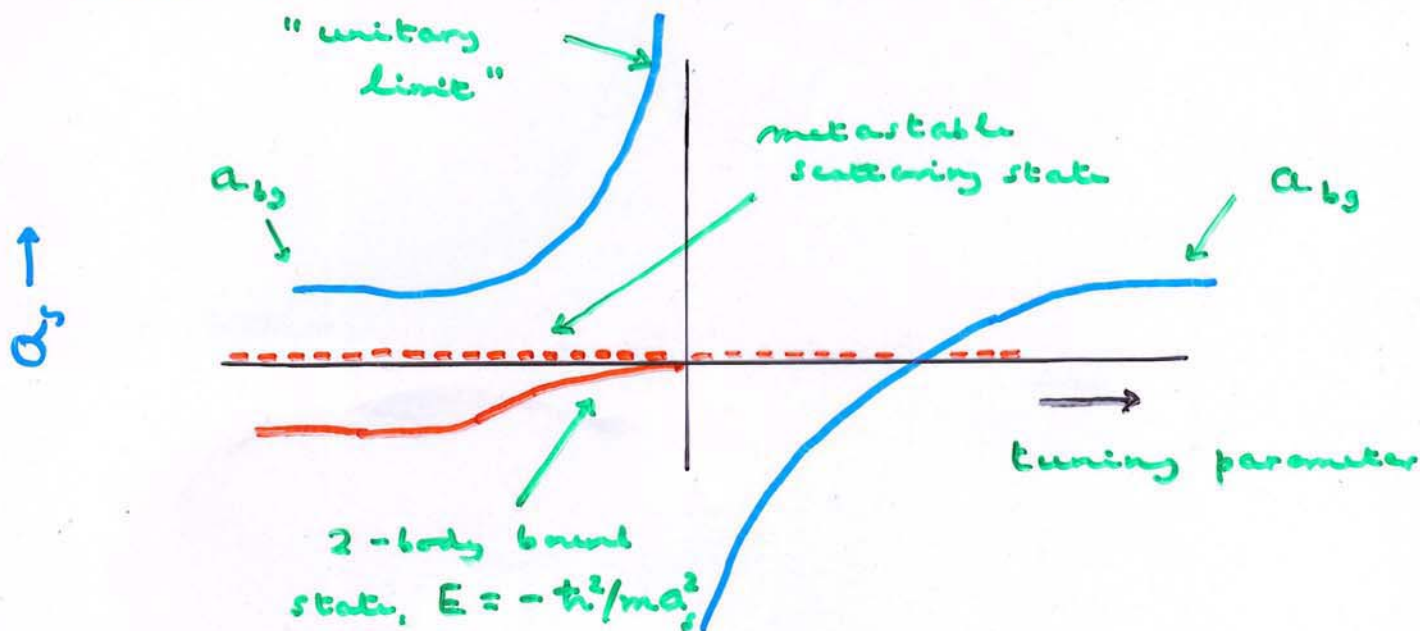 "unitary
limit"
metastable
scattering state
a_bg
a_bg
a_s →
tuning parameter
2-body bound
state, E = -ħ²/ma_s²